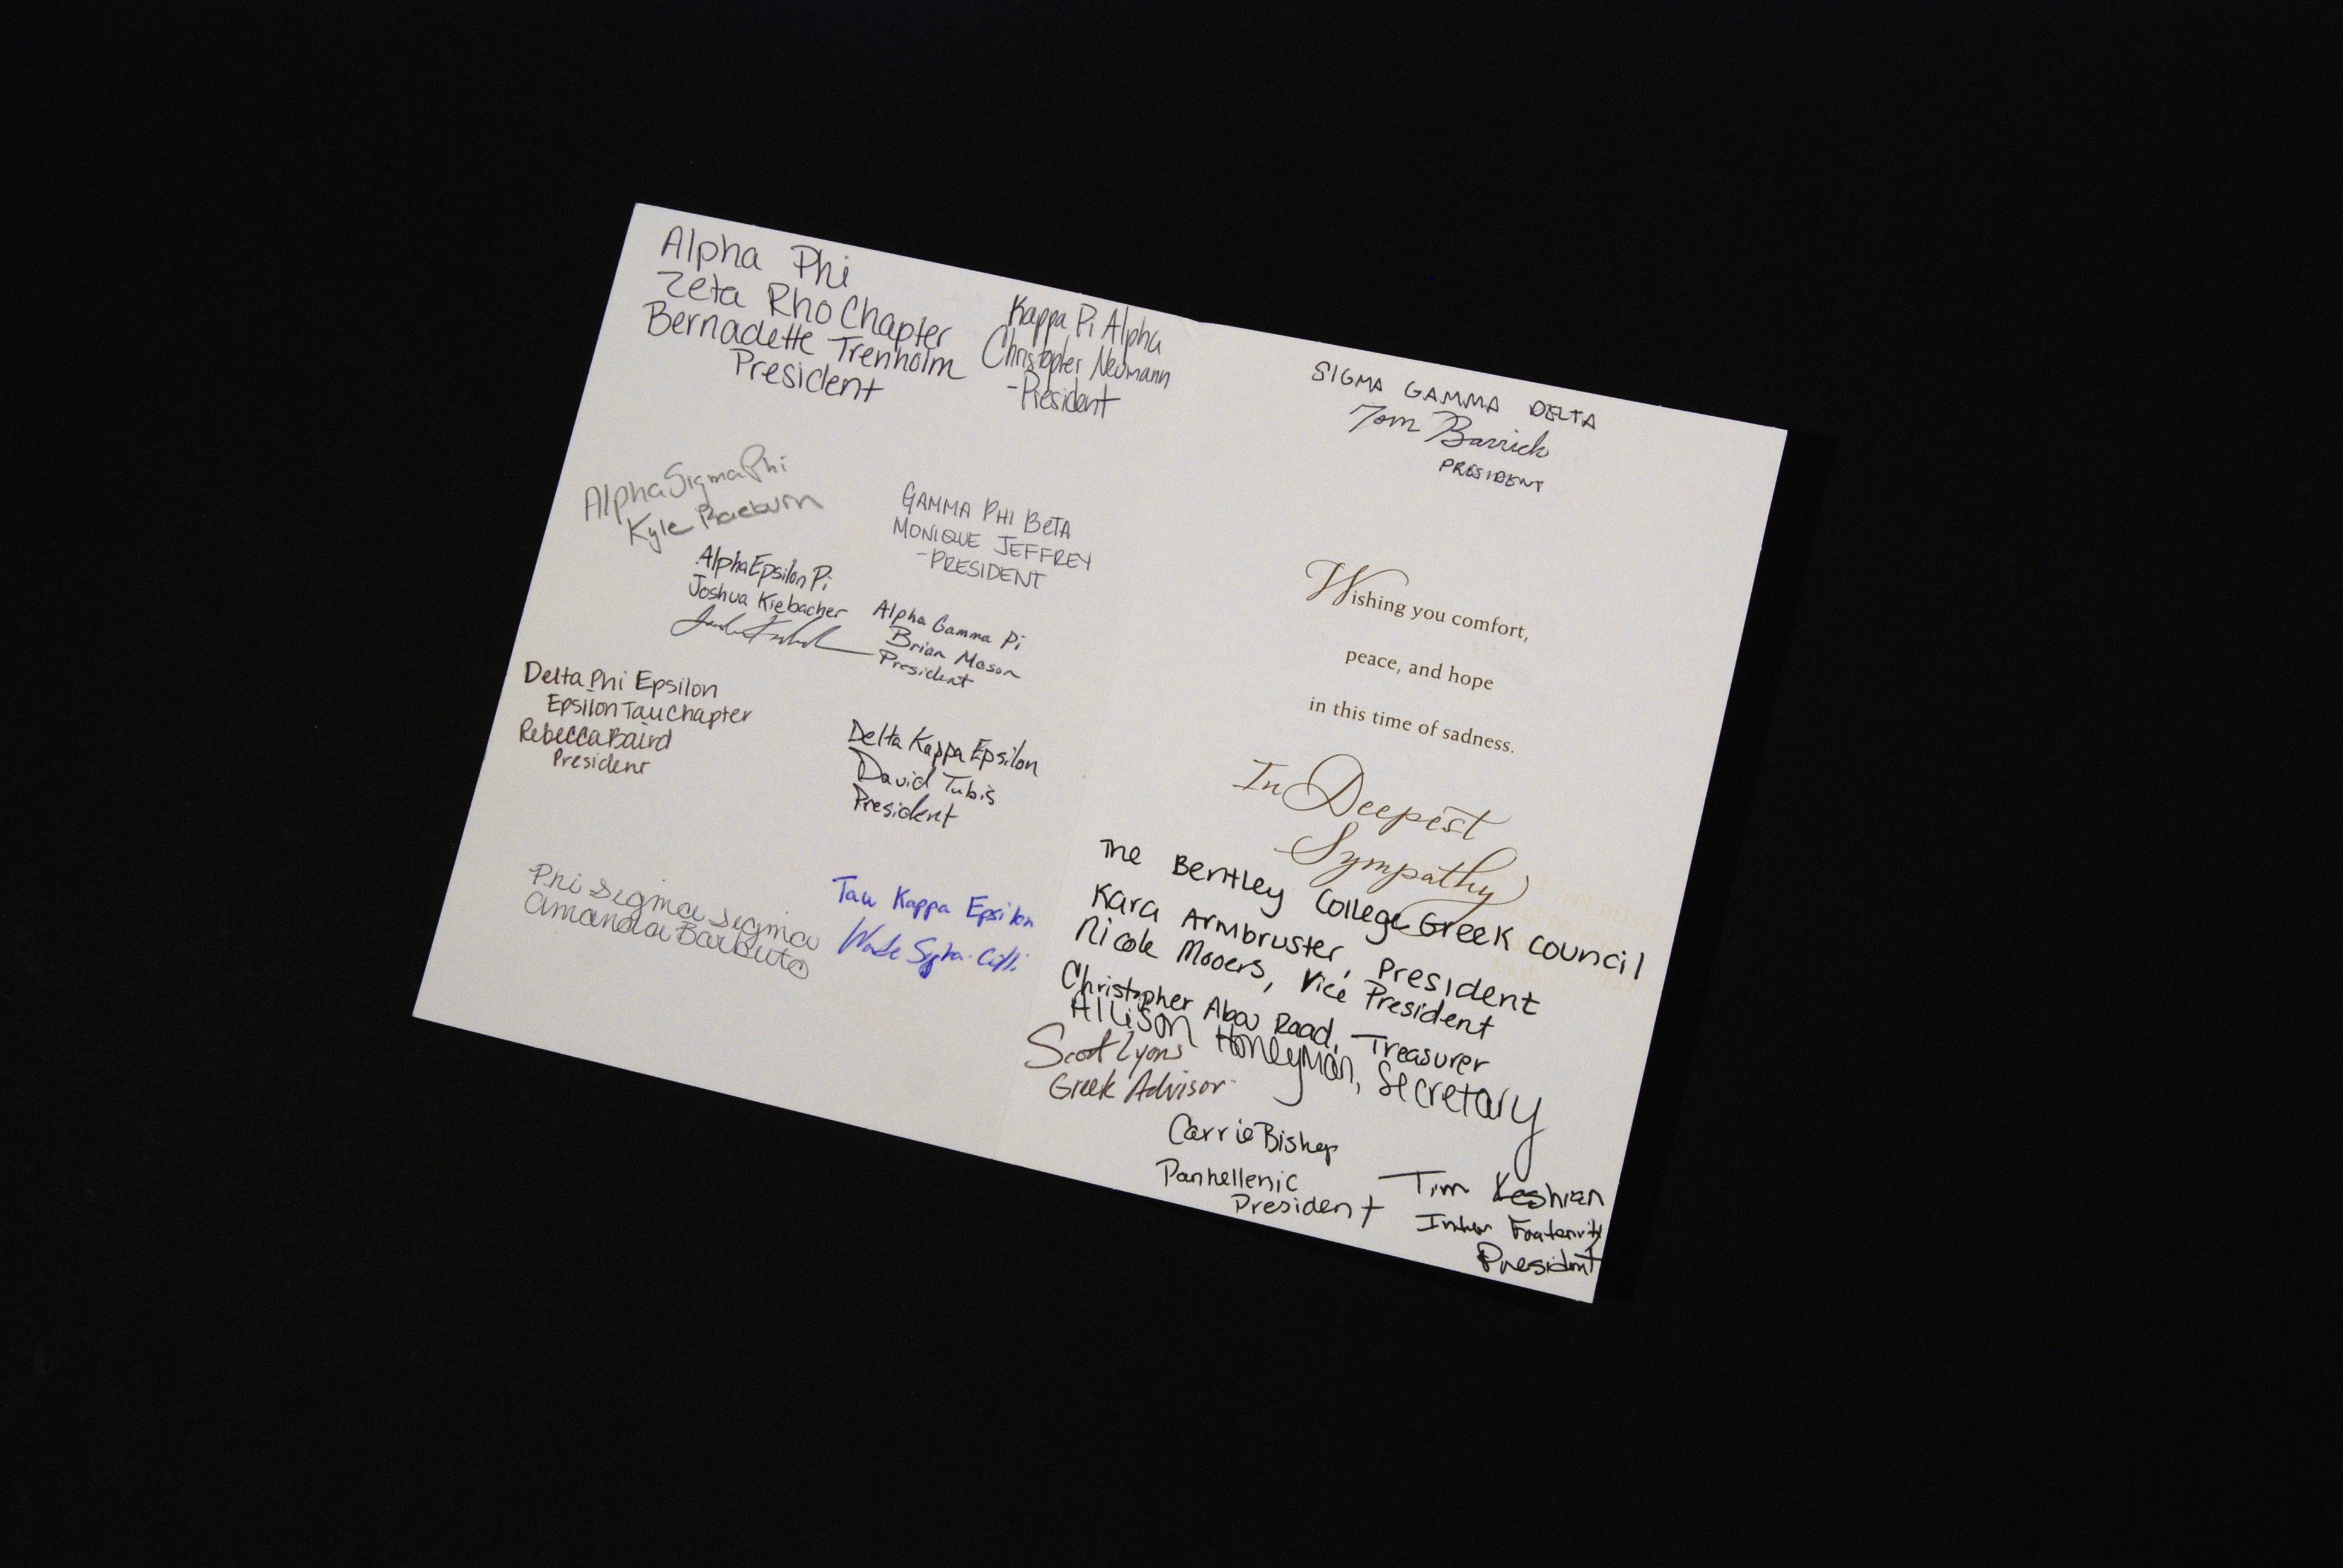 Alpha Phi
Zeta Rho Chapter
Bernadette Trenholm
President
Kappa Pi Alpha
Christopher Neumann
-President
Alpha Sigma Phi
Kyle Raeburn
GAMMA PHI BETA
MONIQUE JEFFREY
-PRESIDENT
Alpha Epsilon Pi
Joshua Kiebacher
Alpha Gamma Pi
Brian Mason
President
Delta Phi Epsilon
Epsilon Tau Chapter
Rebecca Baird
President
Delta Kappa Epsilon
David Tubis
President
Phi Sigma Sigma
Amanda Barbuto
Tau Kappa Epsilon
SIGMA GAMMA DELTA
Tom Barrick
PRESIDENT
Wishing you comfort,
peace, and hope
in this time of sadness.
In Deepest
Sympathy
The Bentley College Greek Council
Kara Armbruster, President
Nicole Mooers, Vice President
Christopher Abou Raad, Treasurer
Allison Honeyman, Secretary
Scott Lyons
Greek Advisor
Carrie Bishop
Panhellenic
President
Tim Keshian
Inter Fraternity
President